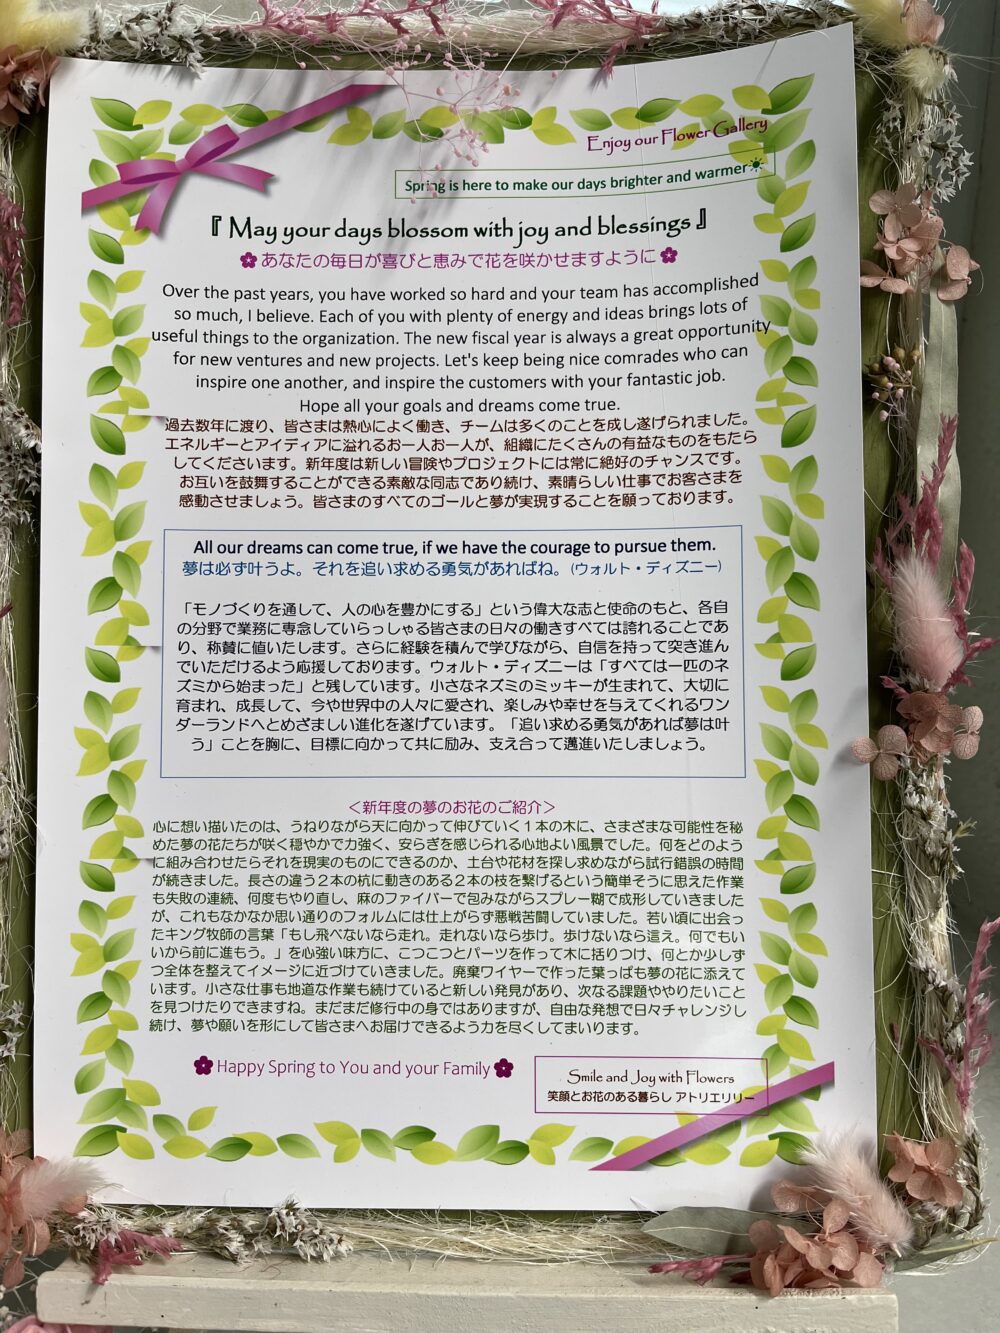 Enjoy our Flower Gallery
Spring is here to make our days brighter and warmer☀
『 May your days blossom with joy and blessings 』
あなたの毎日が喜びと恵みで花を咲かせますように
Over the past years, you have worked so hard and your team has accomplished
so much, I believe. Each of you with plenty of energy and ideas brings lots of
useful things to the organization. The new fiscal year is always a great opportunity
for new ventures and new projects. Let's keep being nice comrades who can
inspire one another, and inspire the customers with your fantastic job.
Hope all your goals and dreams come true.
過去数年に渡り、皆さまは熱心によく働き、チームは多くのことを成し遂げられました。
エネルギーとアイディアに溢れるお一人お一人が、組織にたくさんの有益なものをもたら
してくださいます。新年度は新しい冒険やプロジェクトには常に絶好のチャンスです。
お互いを鼓舞することができる素敵な同志であり続け、素晴らしい仕事でお客さまを
感動させましょう。皆さまのすべてのゴールと夢が実現することを願っております。
All our dreams can come true, if we have the courage to pursue them.
夢は必ず叶うよ。それを追い求める勇気があればね。(ウォルト・ディズニー)
「モノづくりを通して、人の心を豊かにする」という偉大な志と使命のもと、各自
の分野で業務に専念していらっしゃる皆さまの日々の働きすべては誇れることであ
り、称賛に値いたします。さらに経験を積んで学びながら、自信を持って突き進ん
でいただけるよう応援しております。ウォルト・ディズニーは「すべては一匹のネ
ズミから始まった」と残しています。小さなネズミのミッキーが生まれて、大切に
育まれ、成長して、今や世界中の人々に愛され、楽しみや幸せを与えてくれるワン
ダーランドへとめざましい進化を遂げています。「追い求める勇気があれば夢は叶
う」ことを胸に、目標に向かって共に励み、支え合って邁進いたしましょう。
＜新年度の夢のお花のご紹介＞
心に想い描いたのは、うねりながら天に向かって伸びていく１本の木に、さまざまな可能性を秘
めた夢の花たちが咲く穏やかで力強く、安らぎを感じられる心地よい風景でした。何をどのよう
に組み合わせたらそれを現実のものにできるのか、土台や花材を探し求めながら試行錯誤の時間
が続きました。長さの違う２本の杭に動きのある２本の枝を繋げるという簡単そうに思えた作業
も失敗の連続、何度もやり直し、麻のファイバーで包みながらスプレー糊で成形していきました
が、これもなかなか思い通りのフォルムには仕上がらず悪戦苦闘していました。若い頃に出会っ
たキング牧師の言葉「もし飛べないなら走れ。走れないなら歩け。歩けないなら這え。何でもい
いから前に進もう。」を心強い味方に、こつこつとパーツを作って木に括りつけ、何とか少しず
つ全体を整えてイメージに近づけていきました。廃棄ワイヤーで作った葉っぱも夢の花に添えて
います。小さな仕事も地道な作業も続けていると新しい発見があり、次なる課題ややりたいこと
を見つけたりできますね。まだまだ修行中の身ではありますが、自由な発想で日々チャレンジし
続け、夢や願いを形にして皆さまへお届けできるよう力を尽くしてまいります。
Happy Spring to You and your Family
Smile and Joy with Flowers
笑顔とお花のある暮らし アトリエリリー